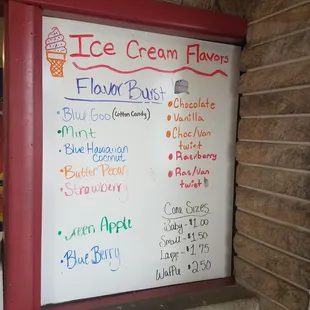 Ice Cream Flavors
Flavor Burst
• Blue Goo (Cotton Candy)
• Mint
• Blue Hawaiian
Coconut
• Butter Pecan
• Strawberry
• Green Apple
• Blue Berry
• Chocolate
• Vanilla
• Choc/Van
twist
• Rasberry
• Ras/Van
twist
Cone Sizes
Baby - $1.00
Small - $1.50
Large - $1.75
Waffle $2.50